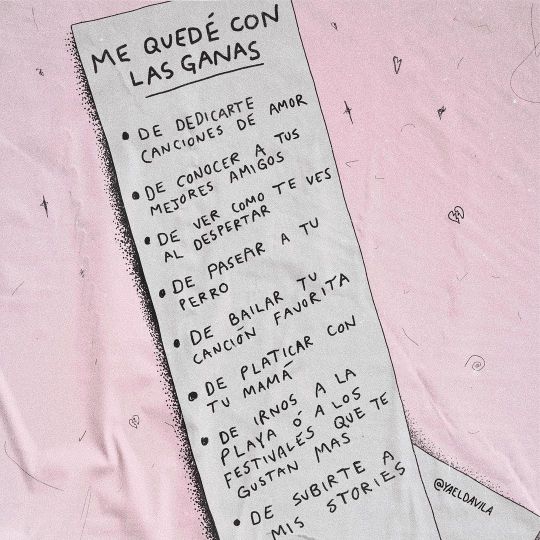 ME QUEDÉ CON
LAS GANAS
• DE DEDICARTE
CANCIONES DE AMOR
• DE CONOCER A TUS
MEJORES AMIGOS
• DE VER COMO TE VES
AL DESPERTAR
• DE PASEAR A TU
PERRO
• DE BAILAR TU
CANCIÓN FAVORITA
• DE PLATICAR CON
TU MAMÁ
• DE IRNOS A LA
PLAYA Ó A LOS
FESTIVALES QUE TE
GUSTAN MAS
• DE SUBIRTE A
MIS STORIES
@YAELDAVILA